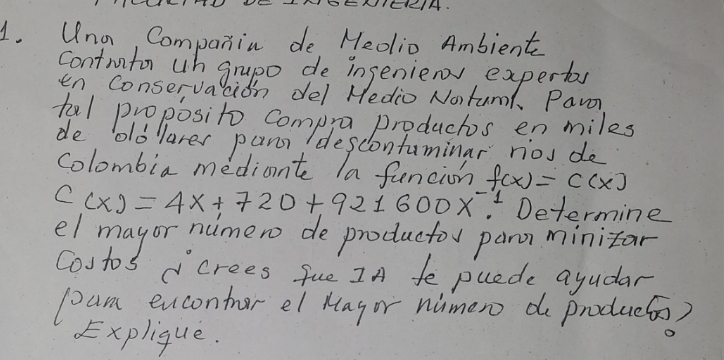 FACULTAD DE INGENIERIA.
1. Una Compañia de Medio Ambiente
contrata un grupo de ingenieros expertos
en conservación del Medio Natural. Para
tal propósito compra productos en miles
de dólares para descontaminar rios de
Colombia mediante la función f(x) = C(x)
C(x) = 4x + 720 + 921600x⁻¹. Determine
el mayor número de productos para minizar
Costos ¿ crees que IA te puede ayudar
para encontrar el Mayor número de productos?
Explique.